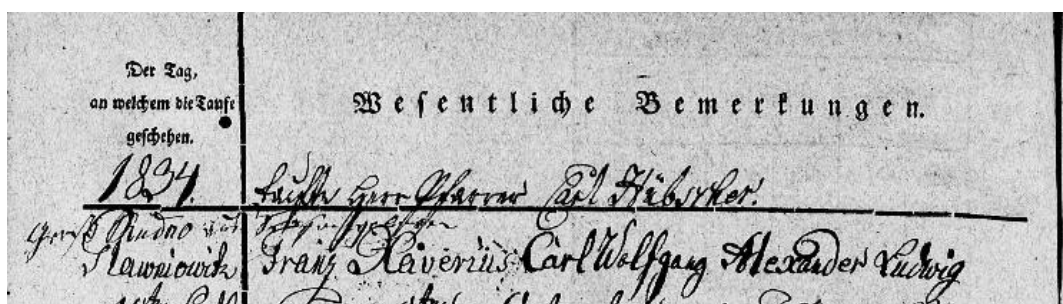 Der Tag,
an welchem die Taufe
geschehen.
Wesentliche Bemerkungen.
1834.
taufte Herr Pfarrer Carl Hübscher.
Groß Rudno und
Slawniowitz
Franz Xaverius Carl Wolfgang Alexander Ludwig